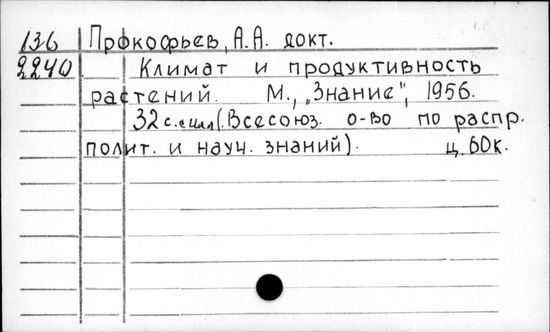 136 Прокофьев, А.А. докт.
2240 Климат и продуктивность
растений. М., „Знание", 1956.
32 с. с илл. (Всесоюз. о-во по распр.
полит. и науч. знаний). ц. 60к.